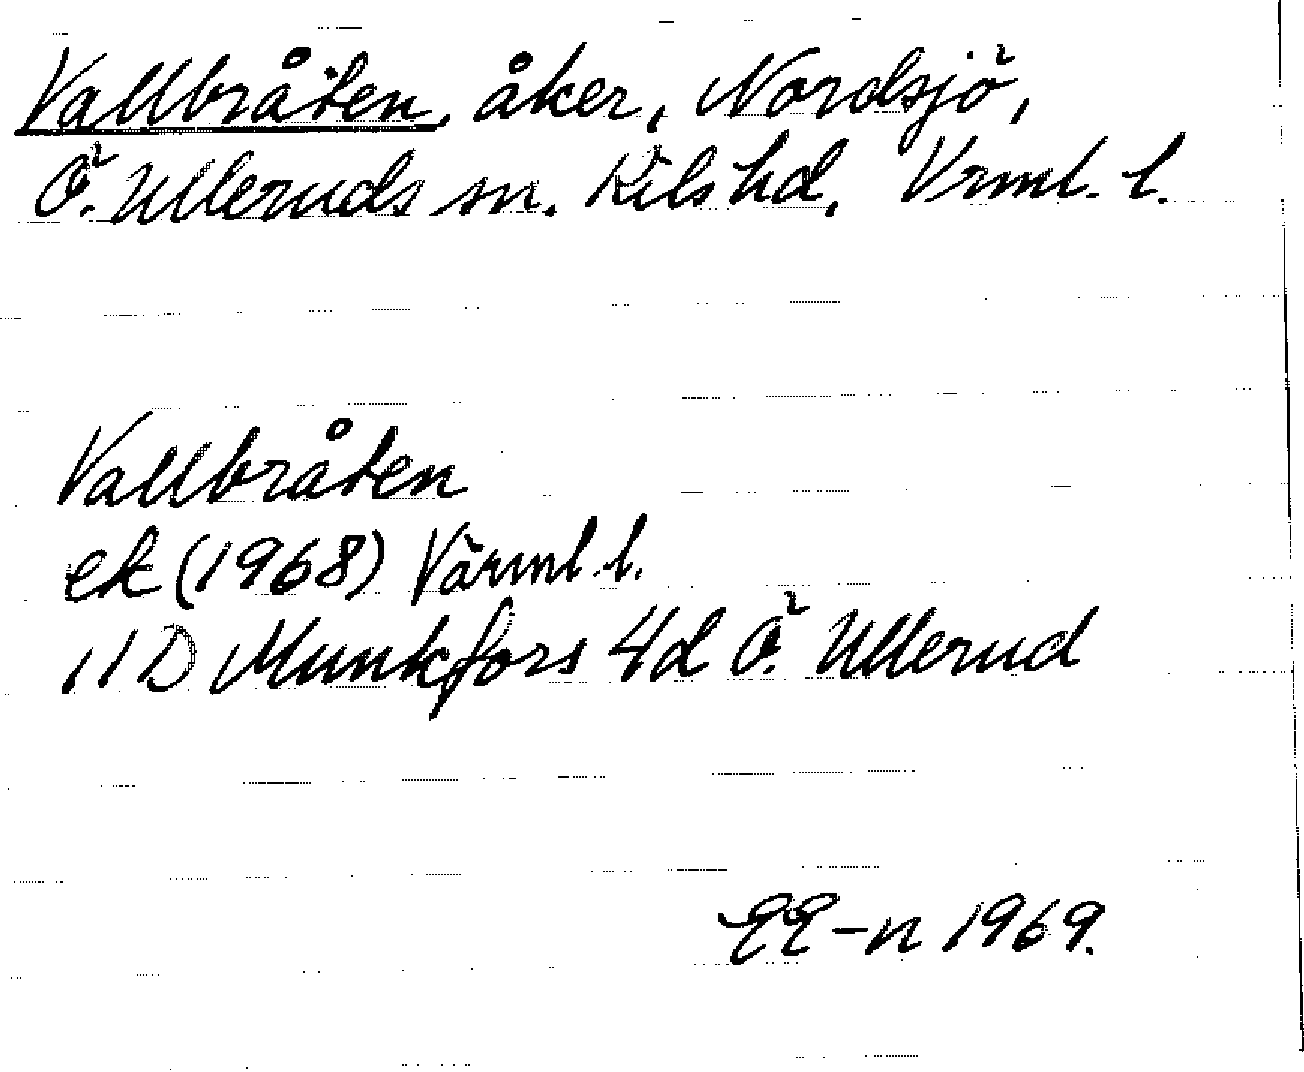 Vallbråten, åker, Nordsjö,
Ö. Ulleruds sn. Kils hd. Vrml. l.
Vallbråten
ek (1968) Värml. l.
11D Munkfors 4d Ö. Ullerud
EE-n 1969.